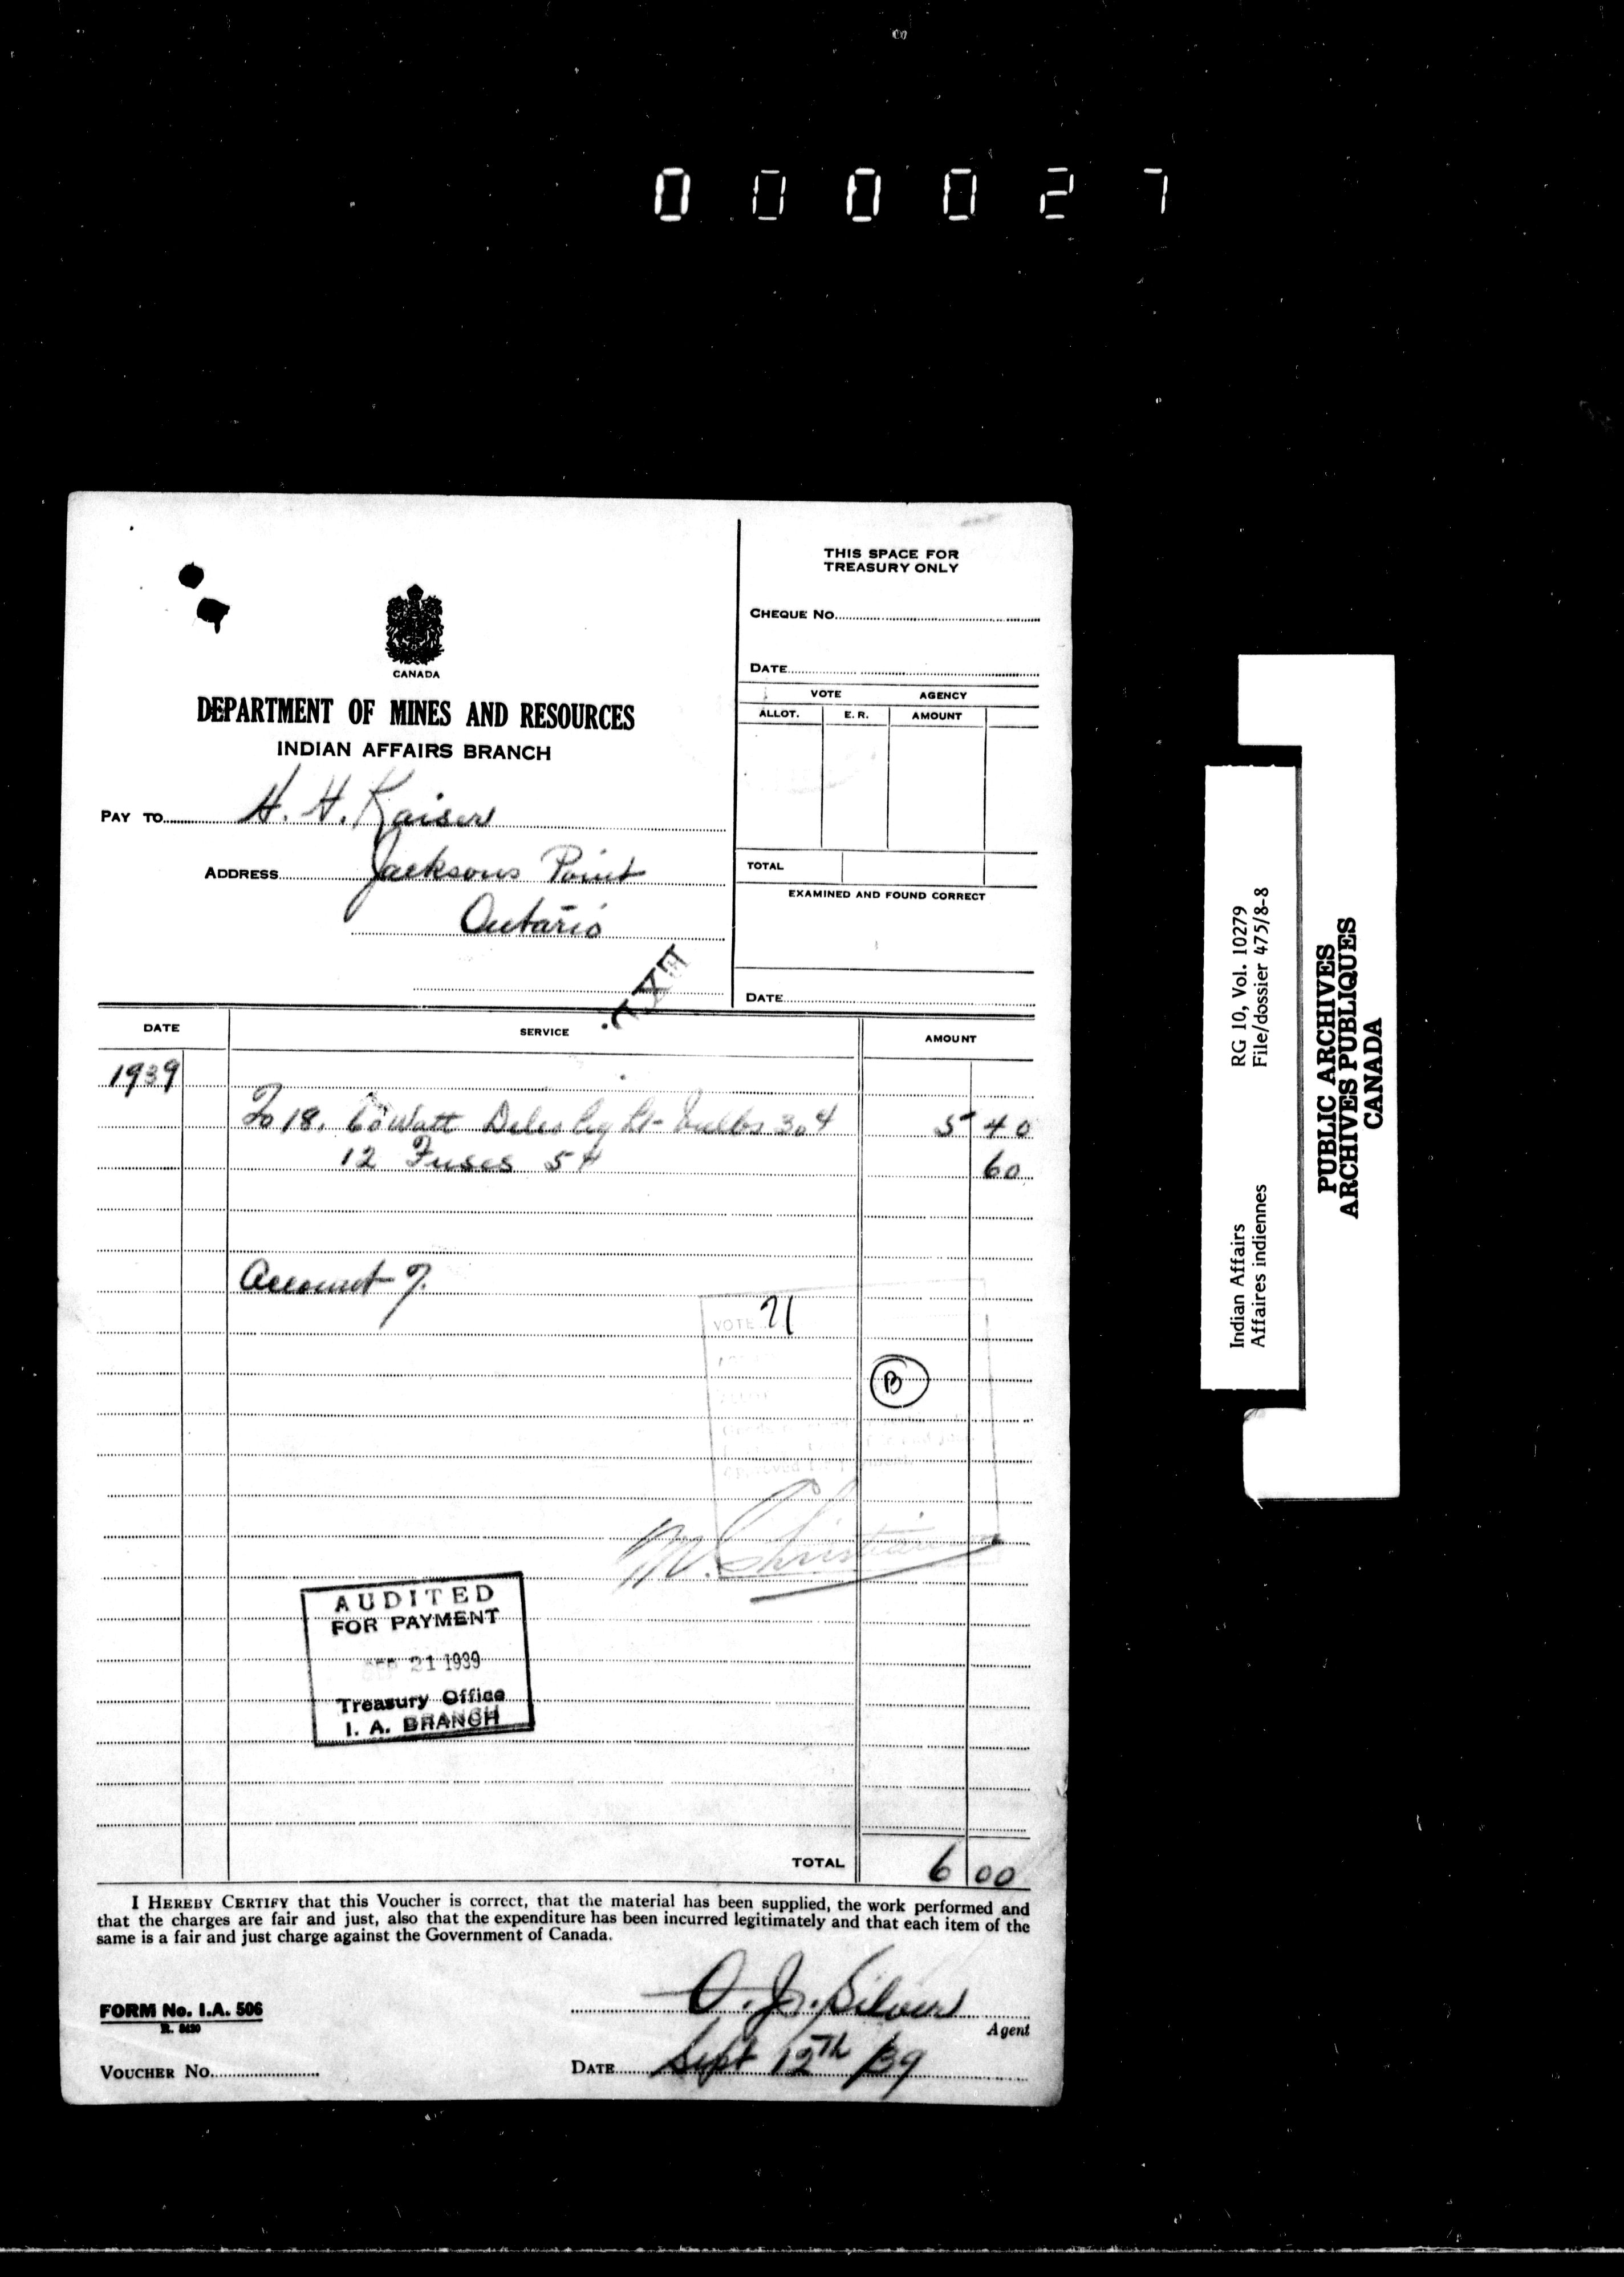 000027
THIS SPACE FOR
TREASURY ONLY
CHEQUE NO.
DATE
VOTE AGENCY
ALLOT. E. R. AMOUNT
TOTAL
EXAMINED AND FOUND CORRECT
DATE
CANADA
DEPARTMENT OF MINES AND RESOURCES
INDIAN AFFAIRS BRANCH
PAY TO H. H. Kaiser
ADDRESS Jacksons Point
Ontario
DATE SERVICE AMOUNT
1939
To 18. 60 Watt Delco light bulbs 30¢ 5 40
12 Fuses 5¢ 60
Account 7.
VOTE 71
B
Approved for Payment
M. Christian
AUDITED
FOR PAYMENT
SEP 21 1939
Treasury Office
I. A. BRANCH
TOTAL 6 00
I HEREBY CERTIFY that this Voucher is correct, that the material has been supplied, the work performed and
that the charges are fair and just, also that the expenditure has been incurred legitimately and that each item of the
same is a fair and just charge against the Government of Canada.
O. J. Silver
Agent
FORM No. I.A. 506
R. 8420
VOUCHER NO.
DATE Sept 12th /39
Indian Affairs RG 10, Vol. 10279
Affaires indiennes File/dossier 475/8-8
PUBLIC ARCHIVES
ARCHIVES PUBLIQUES
CANADA